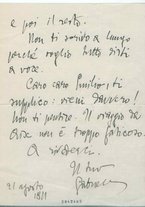 e poi il resto.
Non ti scrivo a lungo
perché voglio tutto dirti
a voce.
Caro caro Giulio, ti
supplico: vieni davvero!
Non ti pentire. Il viaggio da
non è troppo faticoso.
A rivederci
Il tuo
21 agosto